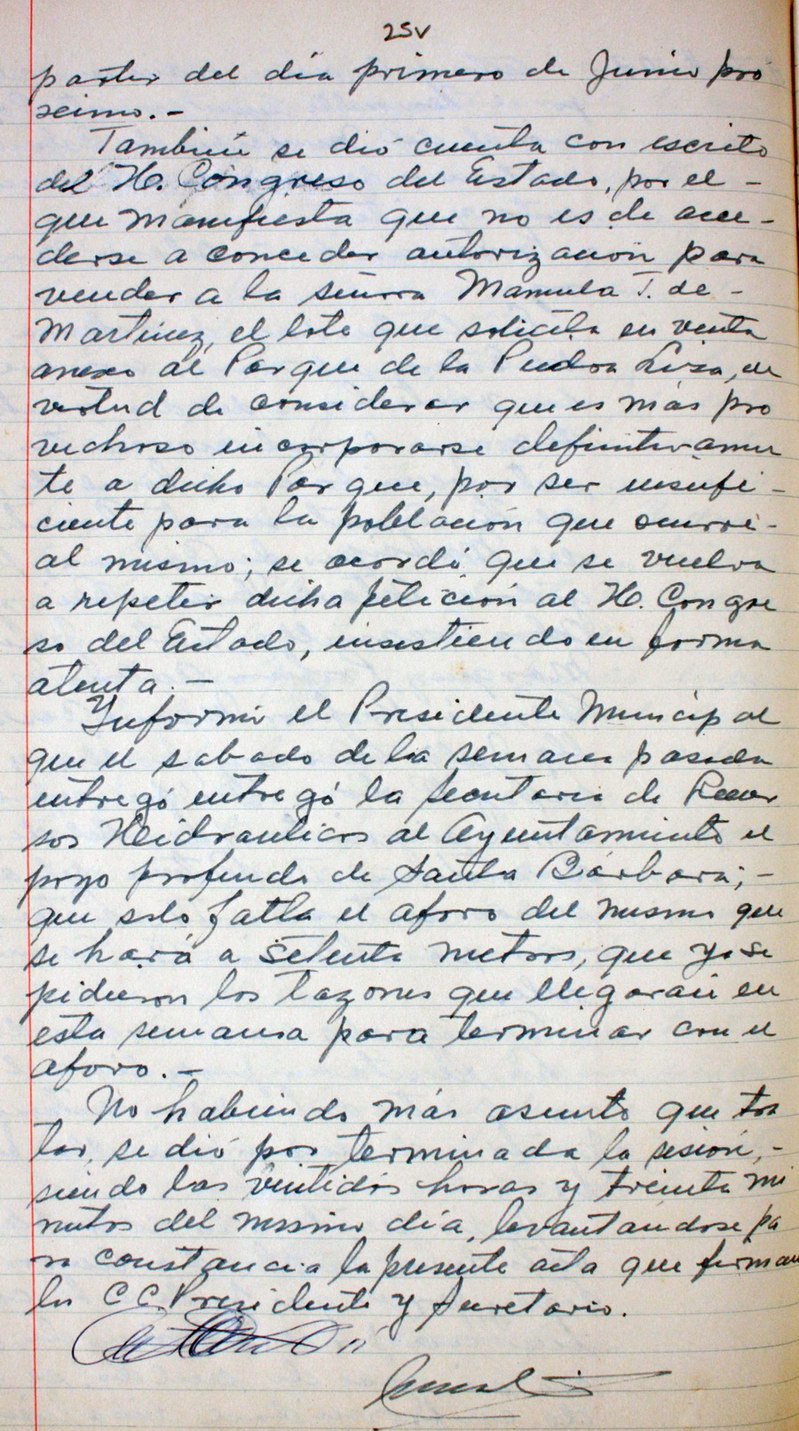 25v
partir del día primero de Junio pró
ximo.-
También se dió cuenta con escrito
del H. Congreso del Estado, por el -
que manifiesta que no es de acce-
derse a conceder autorización para
vender a la señora Manuela T. de -
Martínez, el lote que solicita en venta
anexo al Parque de la Piedra Liza, en
virtud de considerar que es más pro
vechoso incorporarse definitivamen
te a dicho Parque, por ser insufi-
ciente para la población que ocurre-
al mismo; se acordó que se vuelva
a repetir dicha petición al H. Congre
so del Estado, insistiendo en forma
atenta.-
Informó el Presidente Municipal
que el sabado de la semana pasada
entregó entregó la Secretaria de Recur
sos Hidraulicos al Ayuntamiento el
pozo profundo de Santa Bárbara;-
que solo fatla el aforo del mismo que
se hará a setenta metros, que ya se
pidieron los tazones que llegarán en
esta semana para terminar con el
aforo.-
No habiendo más asunto que tra
tar, se dió por terminada la sesión,-
siendo las veintidós horas y treinta mi
nutos del mismo día, levantandose pa
ra constancia la presente acta que firman
los C.C. Presidente y Secretario.